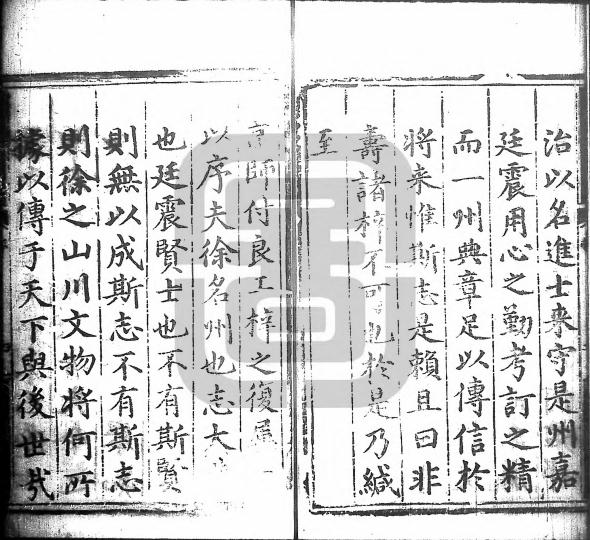 治以名進士来守是州嘉
廷震用心之勤考訂之精
而一州典章足以傳信於
將来惟斯志是賴且曰非
壽諸梓不可也於是乃緘
至
京師付良工梓之復属
以序夫徐名州也志大
也廷震賢士也不有斯賢
則無以成斯志不有斯志
則徐之山川文物將何所
據以傳于天下與後世㢤